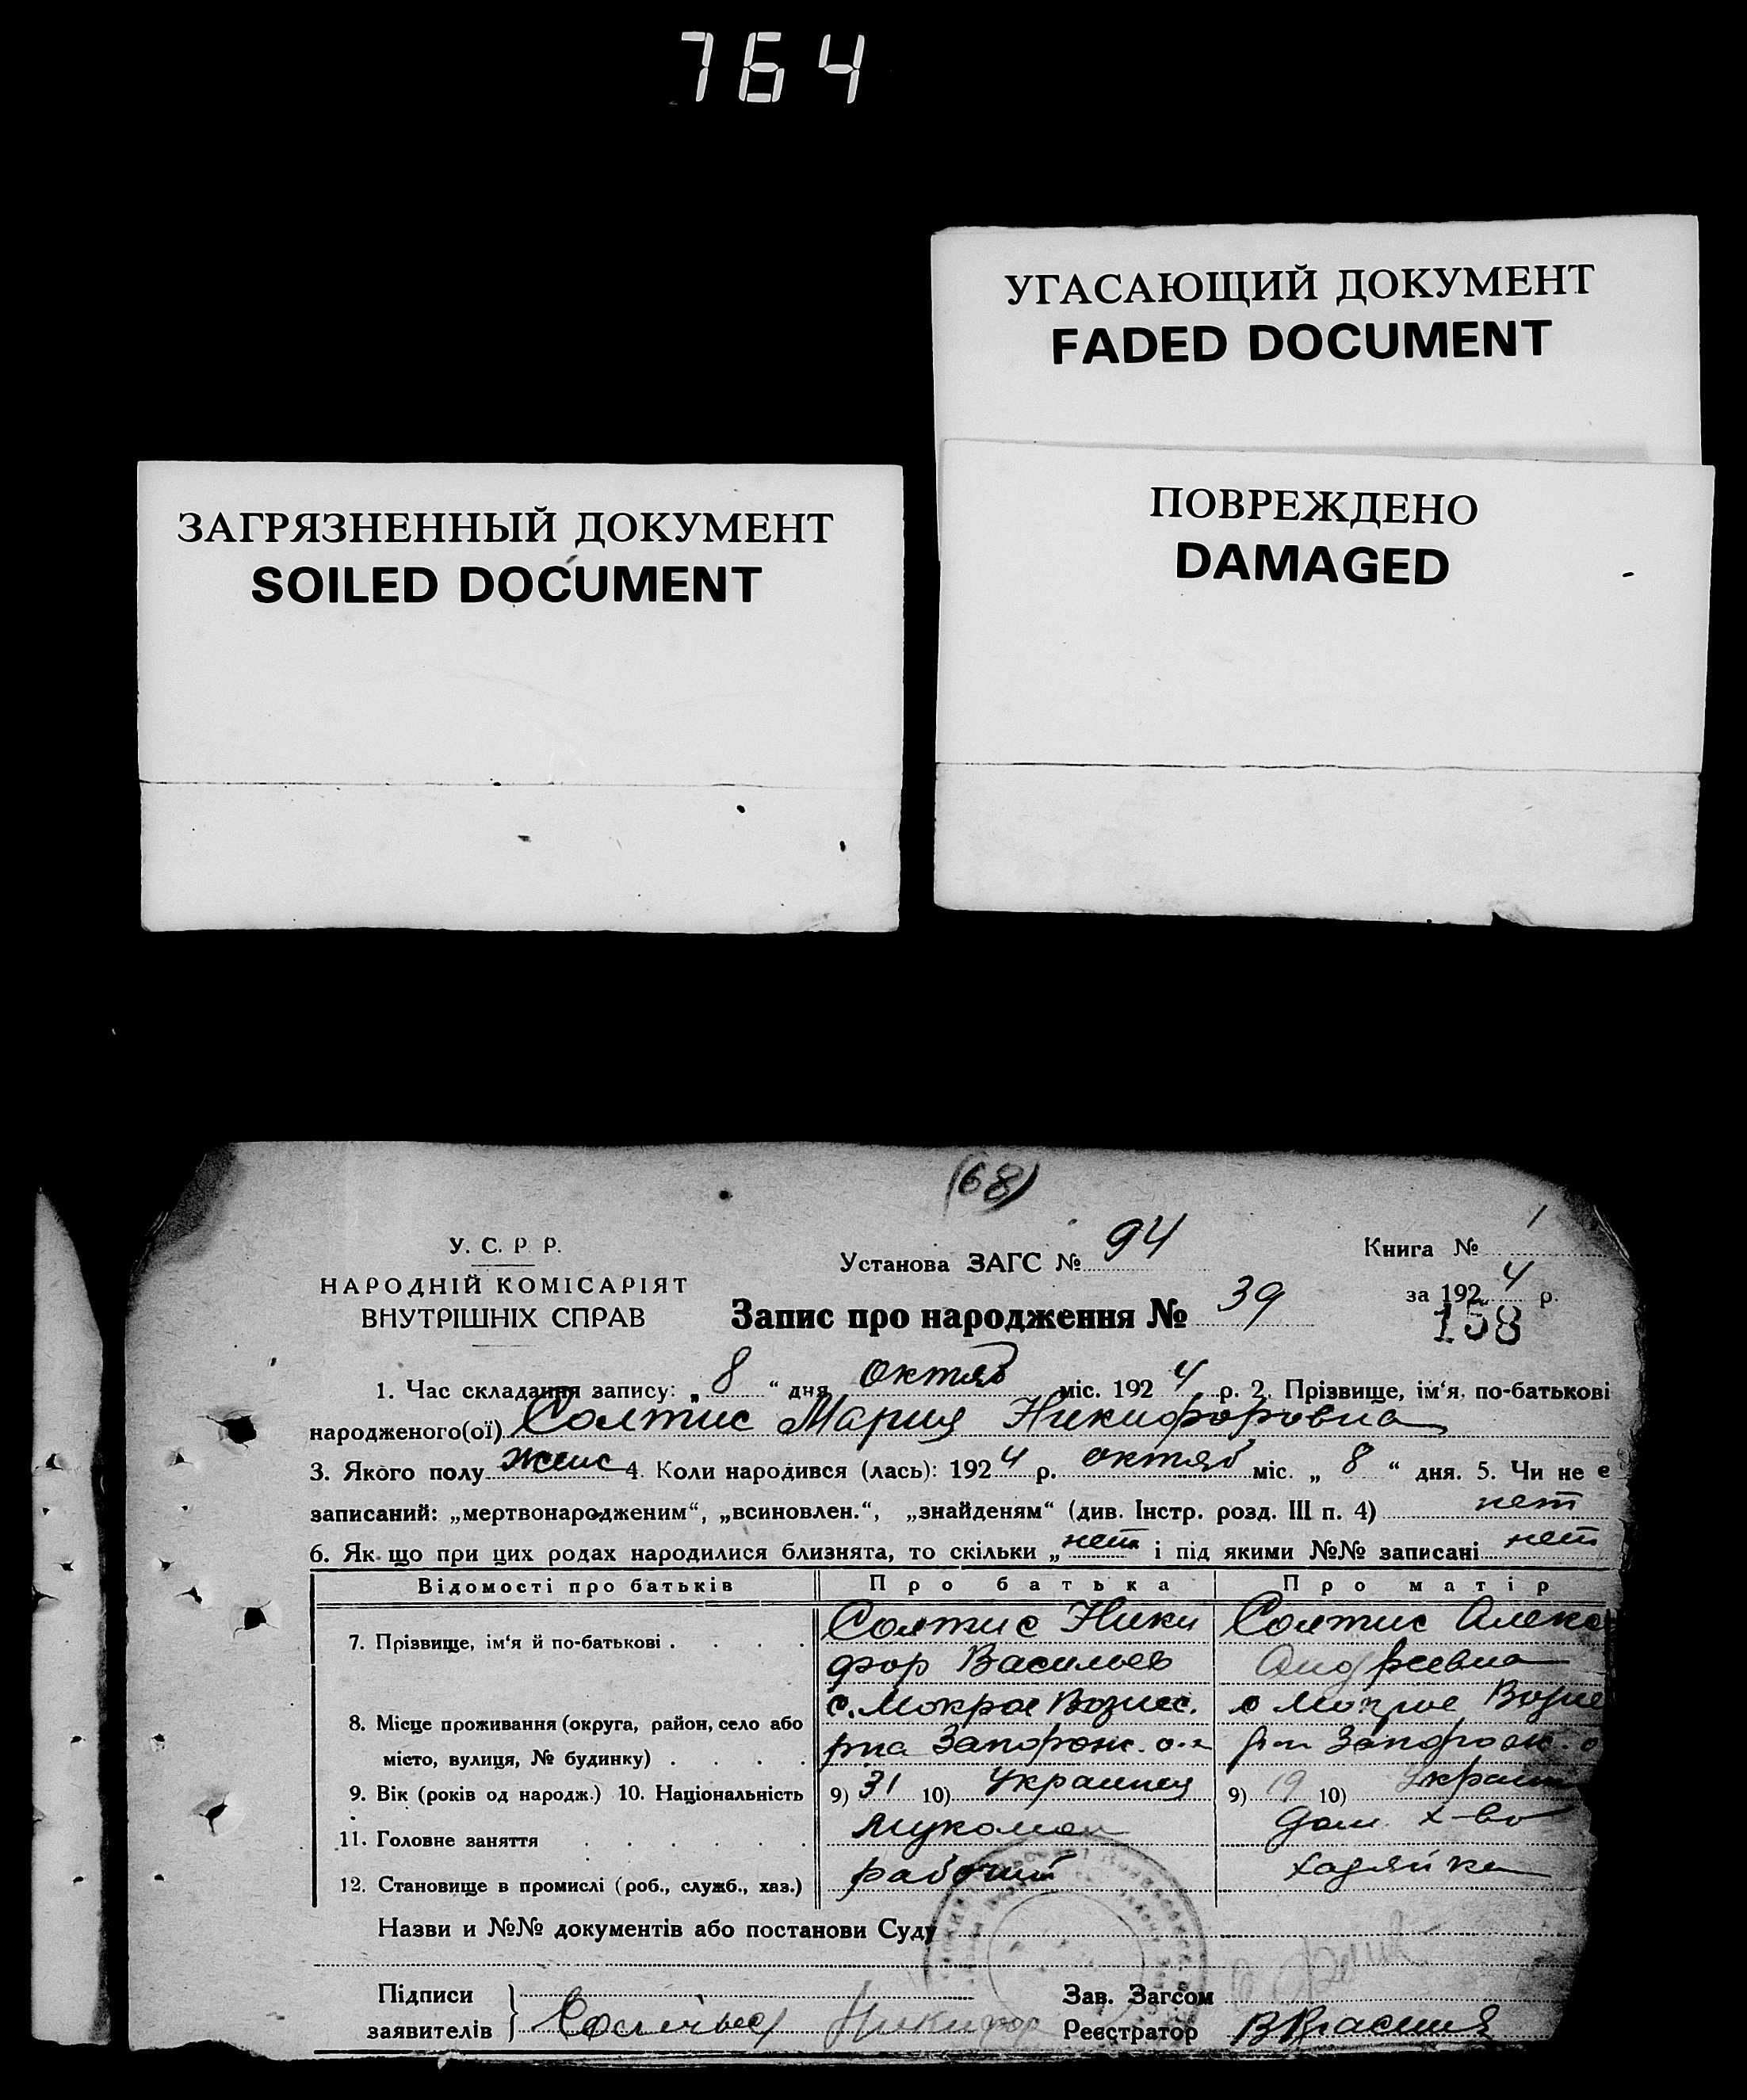 764
УГАСАЮЩИЙ ДОКУМЕНТ
FADED DOCUMENT
ЗАГРЯЗНЕННЫЙ ДОКУМЕНТ
SOILED DOCUMENT
ПОВРЕЖДЕНО
DAMAGED
(68)
У. С. Р. Р.
НАРОДНІЙ КОМІСАРІЯТ
ВНУТРІШНІХ СПРАВ
Установа ЗАГС № 94
Запис про народження № 39
Книга № 1
за 1924 р.
158
1. Час складання запису: „8“ дня октяб міс. 1924 р. 2. Прізвище, ім‘я, по-батькові
народженого(ої) Солтис Мария Никифоровна
3. Якого полу женс 4. Коли народився (лась): 1924 р. октяб міс. „8“ дня. 5. Чи не є
записаний: „мертвонародженим“, „всиновлен.“, „знайденям“ (див. Інстр. розд. III п. 4) нет
6. Як що при цих родах народилися близнята, то скільки „нет“ і під якими №№ записані нет
Відомості про батьків Про батька Про матір
7. Прізвище, ім‘я й по-батькові . . . . Солтис Ники Солтис Алекс
фор Васильев Андреевна
8. Місце проживання (округа, район, село або с. Мокрое Вознес. с Мокрое Возне
місто, вулиця, № будинку) . . . . рна Запорож. о. рна Запорож. о
9. Вік (років од народж.) 10. Національність 9) 31 10) Украинец 9) 19 10) Украин
11. Головне заняття . . . . . . мукомол дом. х-во
12. Становище в промислі (роб., служб., хаз.) рабочий хозяйка
Назви и №№ документів або постанови Суду
Підписи
заявителів Никифор
Зав. Загсом
Реєстратор